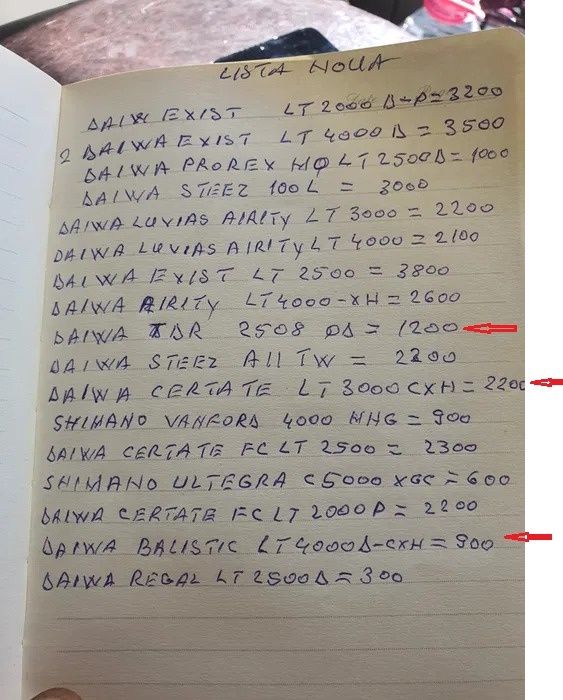 LISTA NOUA
DAIWA EXIST LT 2000 D-P = 3200
2 DAIWA EXIST LT 4000 D = 3500
DAIWA PROREX MQ LT 2500D = 1000
DAIWA STEEZ 100L = 3000
DAIWA LUVIAS AIRITY LT 3000 = 2200
DAIWA LUVIAS AIRITY LT 4000 = 2100
DAIWA EXIST LT 2500 = 3800
DAIWA AIRITY LT 4000-XH = 2600
DAIWA TDR 2508 PD = 1200
DAIWA STEEZ AII TW = 2200
DAIWA CERTATE LT 3000 CXH = 2200
SHIMANO VANFORD 4000 MHG = 900
DAIWA CERTATE FC LT 2500 = 2300
SHIMANO ULTEGRA C5000 XGC = 600
DAIWA CERTATE FC LT 2000P = 2200
DAIWA BALISTIC LT 4000D-CXH = 900
DAIWA REGAL LT 2500D = 300